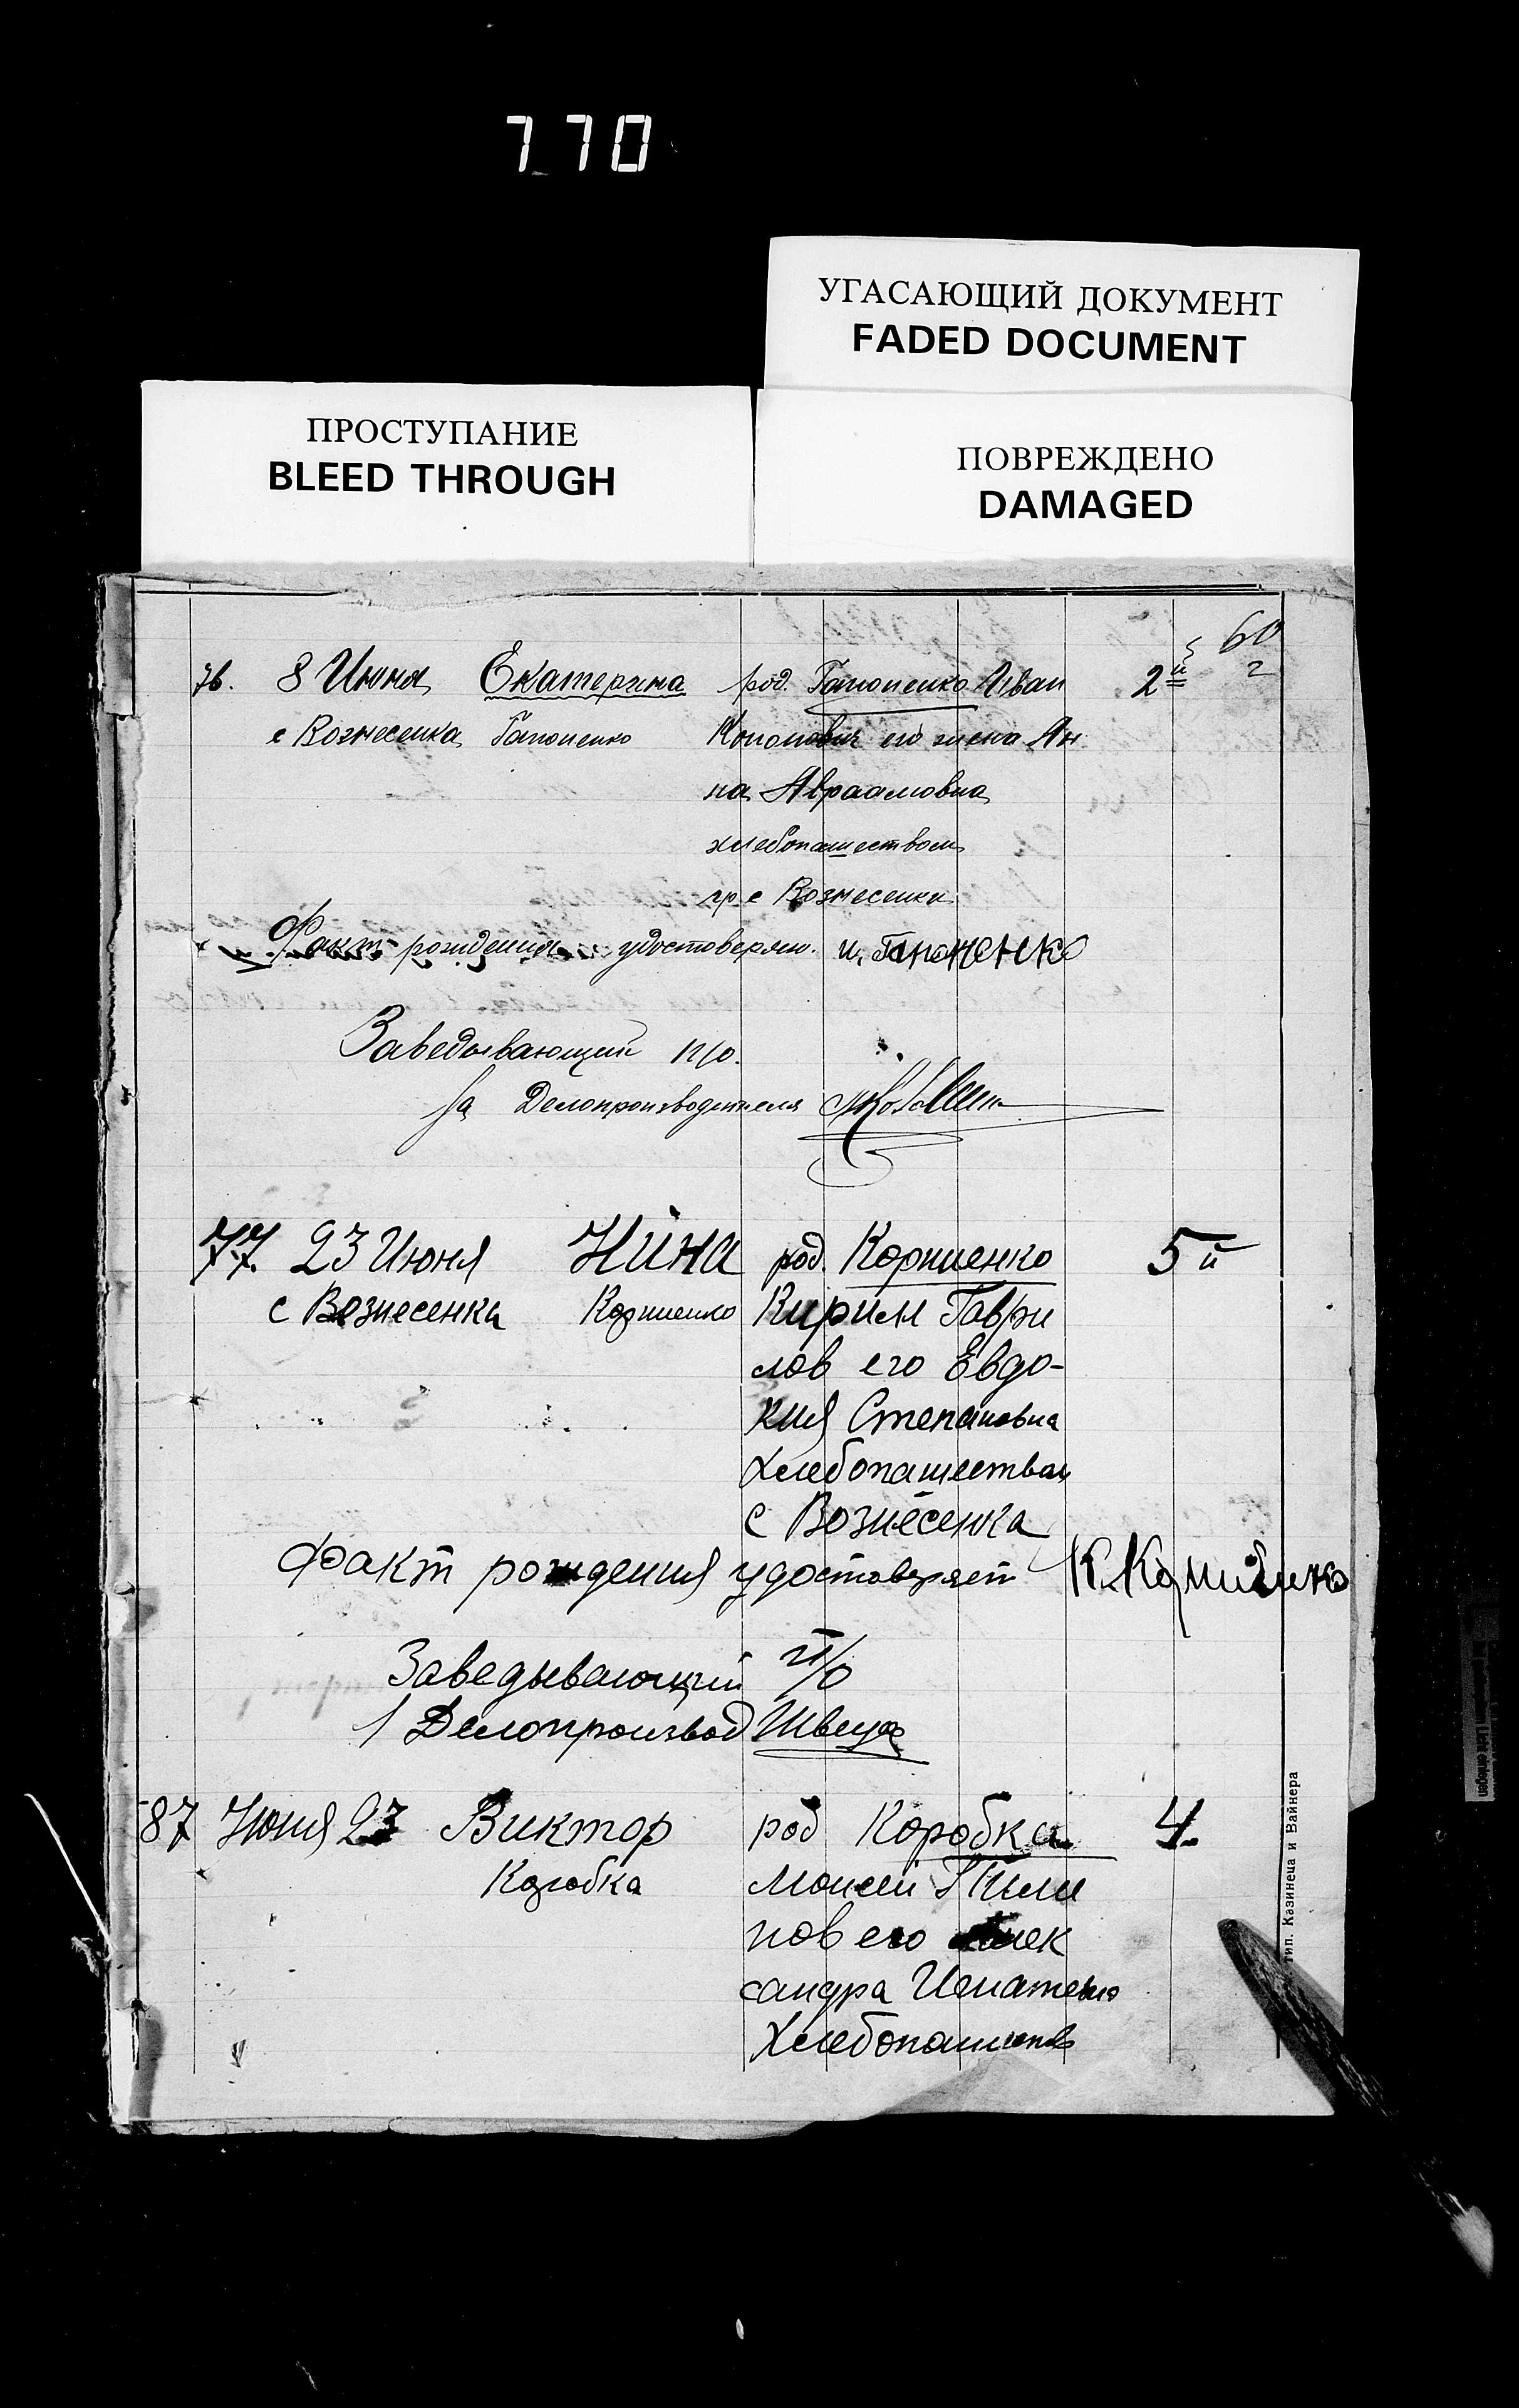 770
УГАСАЮЩИЙ ДОКУМЕНТ
FADED DOCUMENT
ПРОСТУПАНИЕ
BLEED THROUGH
ПОВРЕЖДЕНО
DAMAGED
60
76. 8 Июня Екатерина род. Гапоненко Иван 2й
с Вознесенка Гапоненко Кононович его жена Ан
на Авраамовна
хлебопашеством
гр с Вознесенки
Факт рождения удостоверяю. И, Гапоненко
Заведывающий п/о.
За Делопроизводителя
77. 23 Июня Нина род. Корниенко 5й
с Вознесенка Корниенко Кирилл Гаври
лов его Евдо-
кия Степановна
Хлебопашеством
с Вознесенка
Факт рождения удостоверяет К. Корниенко
Заведывающий п/о
Делопроизвод Швец
87 Июня 23 Виктор род Коробка 4.
Коробка Моисей Фили
пов его
сандра Игнатевна
Хлебопашеств
тип. Казинеца и Вайнера